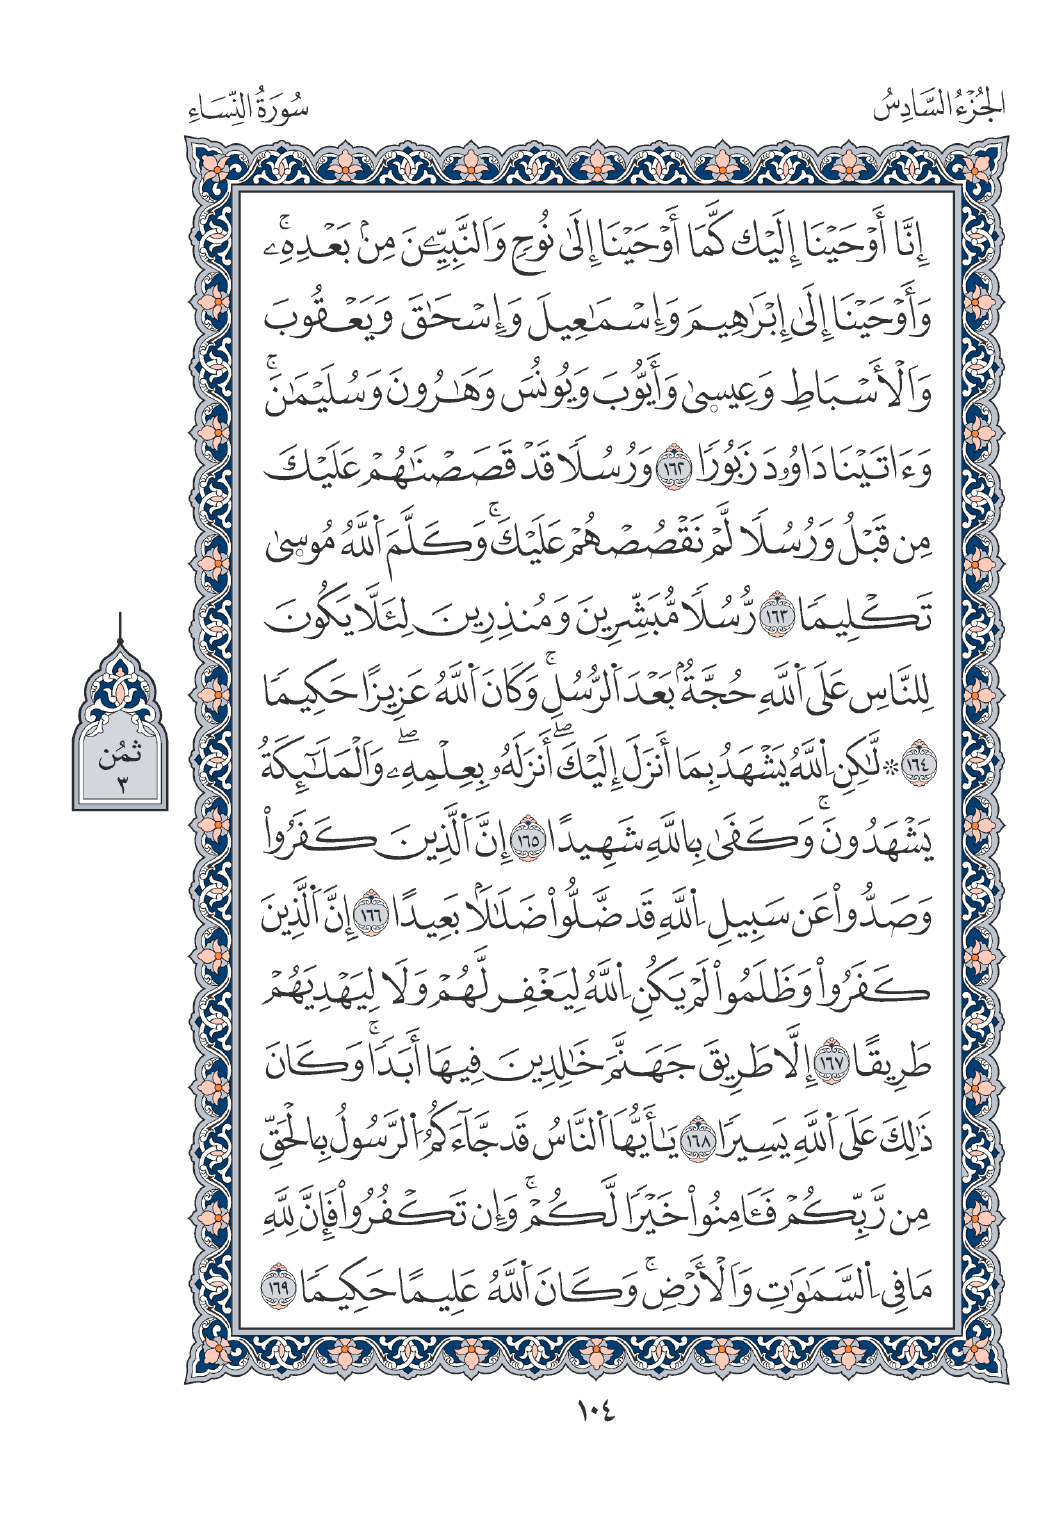 الجُزْءُ السَّادِسُ
سُورَةُ النِّسَاءِ
إِنَّا أَوْحَيْنَا إِلَيْكَ كَمَا أَوْحَيْنَا إِلَىٰ نُوحٍ وَالنَّبِيِّـۧنَ مِنۢ بَعْدِهِۦۚ
وَأَوْحَيْنَا إِلَىٰ إِبْرَٰهِيمَ وَإِسْمَٰعِيلَ وَإِسْحَٰقَ وَيَعْقُوبَ
وَالْأَسْبَاطِ وَعِيسىٰ وَأَيُّوبَ وَيُونُسَ وَهَٰرُونَ وَسُلَيْمَٰنَۚ
وَءَاتَيْنَا دَاوُۥدَ زَبُورٗا ١٦٢ وَرُسُلٗا قَدْ قَصَصْنَٰهُمْ عَلَيْكَ
مِن قَبْلُ وَرُسُلٗا لَّمْ نَقْصُصْهُمْ عَلَيْكَۚ وَكَلَّمَ اَللَّهُ مُوسىٰ
تَكْلِيمٗا ١٦٣ رُّسُلٗا مُّبَشِّرِينَ وَمُنذِرِينَ لِئَلَّا يَكُونَ
لِلنَّاسِ عَلَى اَللَّهِ حُجَّةُۢ بَعْدَ اَلرُّسُلِۚ وَكَانَ اَللَّهُ عَزِيزًا حَكِيمٗا
١٦٤ ۞ لَّٰكِنِ اِللَّهُ يَشْهَدُ بِمَا أَنزَلَ إِلَيْكَۖ أَنزَلَهُۥ بِعِلْمِهِۦۖ وَالْمَلَٰٓئِكَةُ
يَشْهَدُونَۚ وَكَفَىٰ بِاللَّهِ شَهِيدًا ١٦٥ إِنَّ اَلَّذِينَ كَفَرُواْ
وَصَدُّواْ عَن سَبِيلِ اِللَّهِ قَد ضَّلُّواْ ضَلَٰلَۢا بَعِيدًا ١٦٦ إِنَّ اَلَّذِينَ
كَفَرُواْ وَظَلَمُواْ لَمْ يَكُنِ اِللَّهُ لِيَغْفِر لَّهُمْ وَلَا لِيَهْدِيَهُمْ
طَرِيقًا ١٦٧ إِلَّا طَرِيقَ جَهَنَّمَ خَٰلِدِينَ فِيهَا أَبَدٗاۚ وَكَانَ
ذَٰلِكَ عَلَى اَللَّهِ يَسِيرٗا ١٦٨ يَٰأَيُّهَا اَلنَّاسُ قَد جَّآءَكُمُ اُلرَّسُولُ بِالْحَقِّ
مِن رَّبِّكُمْ فَـَٔامِنُواْ خَيْرٗا لَّكُمْۚ وَإِن تَكْفُرُواْ فَإِنَّ لِلَّهِ
مَا فِي اِلسَّمَٰوَٰتِ وَالْأَرْضِۚ وَكَانَ اَللَّهُ عَلِيمًا حَكِيمٗا ١٦٩
ثُمُن
٣
١٠٤